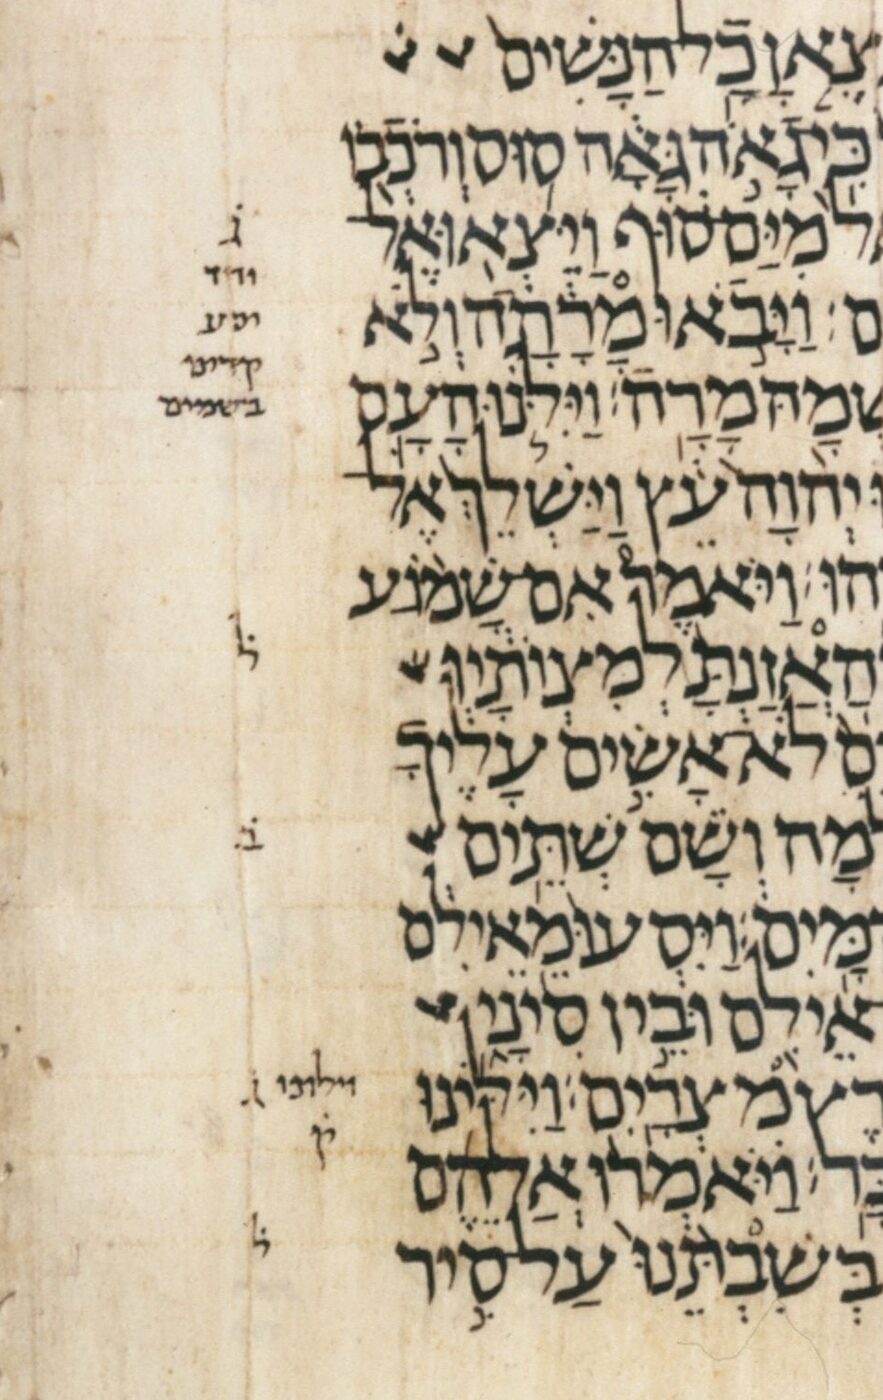 וַתֵּצֶאןָ כָל הַנָּשִׁים
כִּי גָאֹה גָּאָה סוּס וְרֹכְבוֹ
מִיַּם סוּף וַיֵּצְאוּ אֶל
וַיָּבֹאוּ מָרָתָה וְלֹא
שְׁמָהּ מָרָה׃ וַיִּלֹּנוּ הָעָם
יְהוָה עֵץ וַיַּשְׁלֵךְ אֶל
וַיֹּאמֶר אִם שָׁמֹועַ
וְהַאֲזַנְתָּ לְמִצְוֹתָיו
לֹא אָשִׂים עָלֶיךָ
וְשָׁם שְׁתֵּים
הַמָּיִם׃ וַיִּסְעוּ מֵאֵילִם
אֵילִם וּבֵין סִינָי
מִצְרָיִם׃ וַיִּלֹּינוּ
וַיֹּאמְרוּ אֲלֵהֶם
בְּשִׁבְתֵּנוּ עַל סִיר
ג
וירד
יסע
קדים
בשמים
ל
ב
וילונו ג
ק
ל